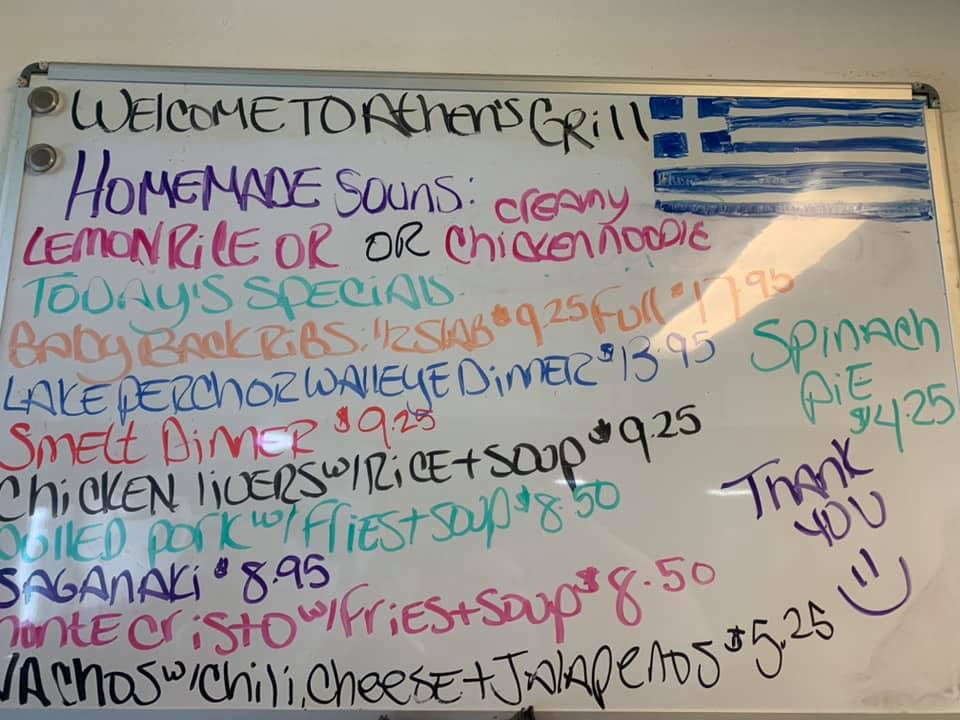 WELCOME TO Athen's GRill
HOMEMADE SOUPS: CREAMY
LEMON RICE OR OR ChiCKEN NOODLE
TODAY'S SPECIALS
BABY BACK RIBS: 1/2 SLAB $9.25 Full $17.95
LAKE PERCH OR WALLEYE DINNER $13.95
SMELT DINNER $9.25
ChiCKEN liVERS W/RiCE + SOUP $9.25
PULLED PORK W/ FRiES + SOUP $8.50
SAGANAKi $8.95
MONTE CRiSTO W/ FRiES + SOUP $8.50
NAChOS W/ Chili, ChEESE + JALAPENOS $5.25
SPINACH
PiE
$4.25
THANK
YOU